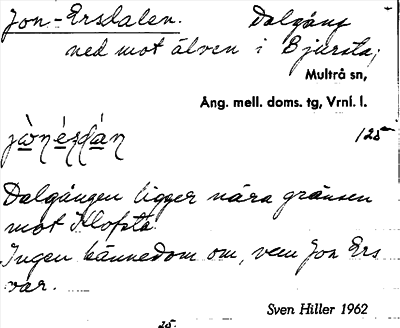 Jon-Ersdalen. Dalgång
ned mot älven i Bjursta,
Multrå sn,
Ång. mell. doms. tg, Vrnl. l.
125
Dalgången ligger nära gränsen
mot Klofsta
Ingen kännedom om, vem Jon Ers
var.
Sven Hiller 1962
25.